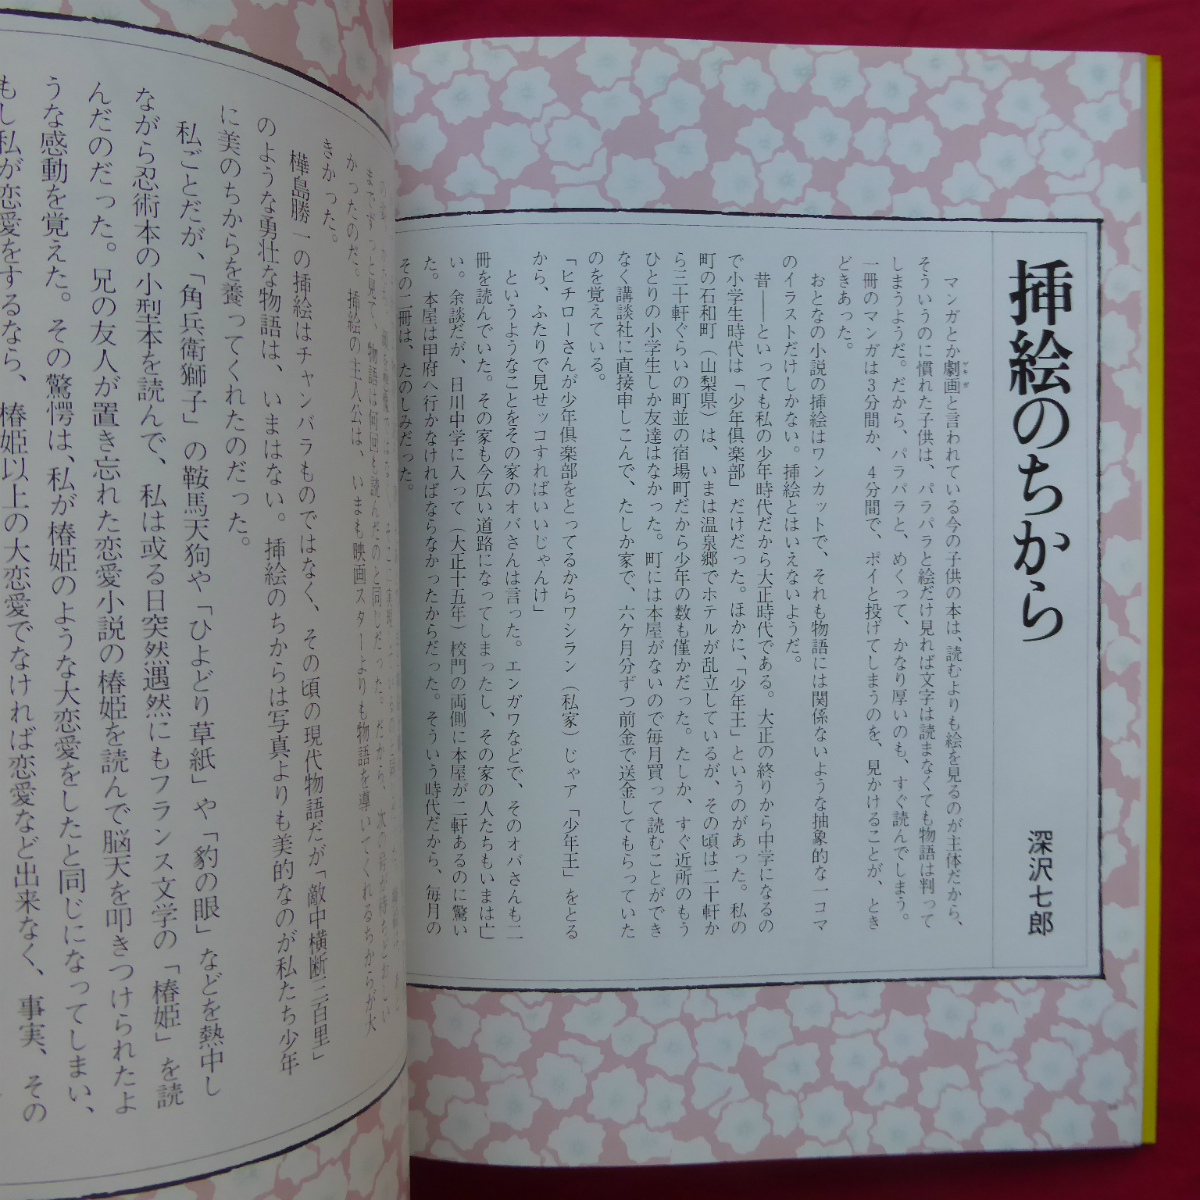 挿絵のちから
深沢七郎
マンガとか劇画と言われている今の子供の本は、読むよりも絵を見るのが主体だから、
ゲキガ
そういうのに慣れた子供は、パラパラと絵だけ見れば文字は読まなくても物語は判って
しまうようだ。だから、パラパラと、めくって、かなり厚いのも、すぐ読んでしまう。
一冊のマンガは3分間か、4分間で、ポイと投げてしまうのを、見かけることが、とき
どきあった。
おとなの小説の挿絵はワンカットで、それも物語には関係ないような抽象的な一コマ
のイラストだけしかない。挿絵とはいえないようだ。
昔——といっても私の少年時代だから大正時代である。大正の終りから中学になるの
で小学生時代は「少年倶楽部」だけだった。ほかに、「少年王」というのがあった。私の
町の石和町（山梨県）は、いまは温泉郷でホテルが乱立しているが、その頃は二十軒か
ら三十軒ぐらいの町並の宿場町だから少年の数も僅かだった。たしか、すぐ近所のもう
ひとりの小学生しか友達はなかった。町には本屋がないので毎月買って読むことができ
なく講談社に直接申しこんで、たしか家で、六ケ月分ずつ前金で送金してもらっていた
のを覚えている。
「ヒチローさんが少年倶楽部をとってるからワシラン（私家）じゃア「少年王」をとる
から、ふたりで見せッコすればいいじゃんけ」
というようなことをその家のオバさんは言った。エンガワなどで、そのオバさんも二
冊を読んでいた。その家も今広い道路になってしまったし、その家の人たちもいまは亡
い。余談だが、日川中学に入って（大正十五年）校門の両側に本屋が二軒あるのに驚い
た。本屋は甲府へ行かなければならなかったからだった。そういう時代だから、毎月の
その二冊は、たのしみだった。
かったのだ。挿絵の主人公は、いまも映画スターよりも物語を導いてくれるちからが大
きかった。
樺島勝一の挿絵はチャンバラものではなく、その頃の現代物語だが「敵中横断三百里」
のような勇壮な物語は、いまはない。挿絵のちからは写真よりも美的なのが私たち少年
に美のちからを養ってくれたのだった。
私ごとだが、「角兵衛獅子」の鞍馬天狗や「ひよどり草紙」や「豹の眼」などを熱中し
ながら忍術本の小型本を読んで、私は或る日突然遇然にもフランス文学の「椿姫」を読
んだのだった。兄の友人が置き忘れた恋愛小説の椿姫を読んで脳天を叩きつけられたよ
うな感動を覚えた。その驚愕は、私が椿姫のような大恋愛をしたと同じになってしまい、
もし私が恋愛をするなら、椿姫以上の大恋愛でなければ恋愛など出来なく、事実、その